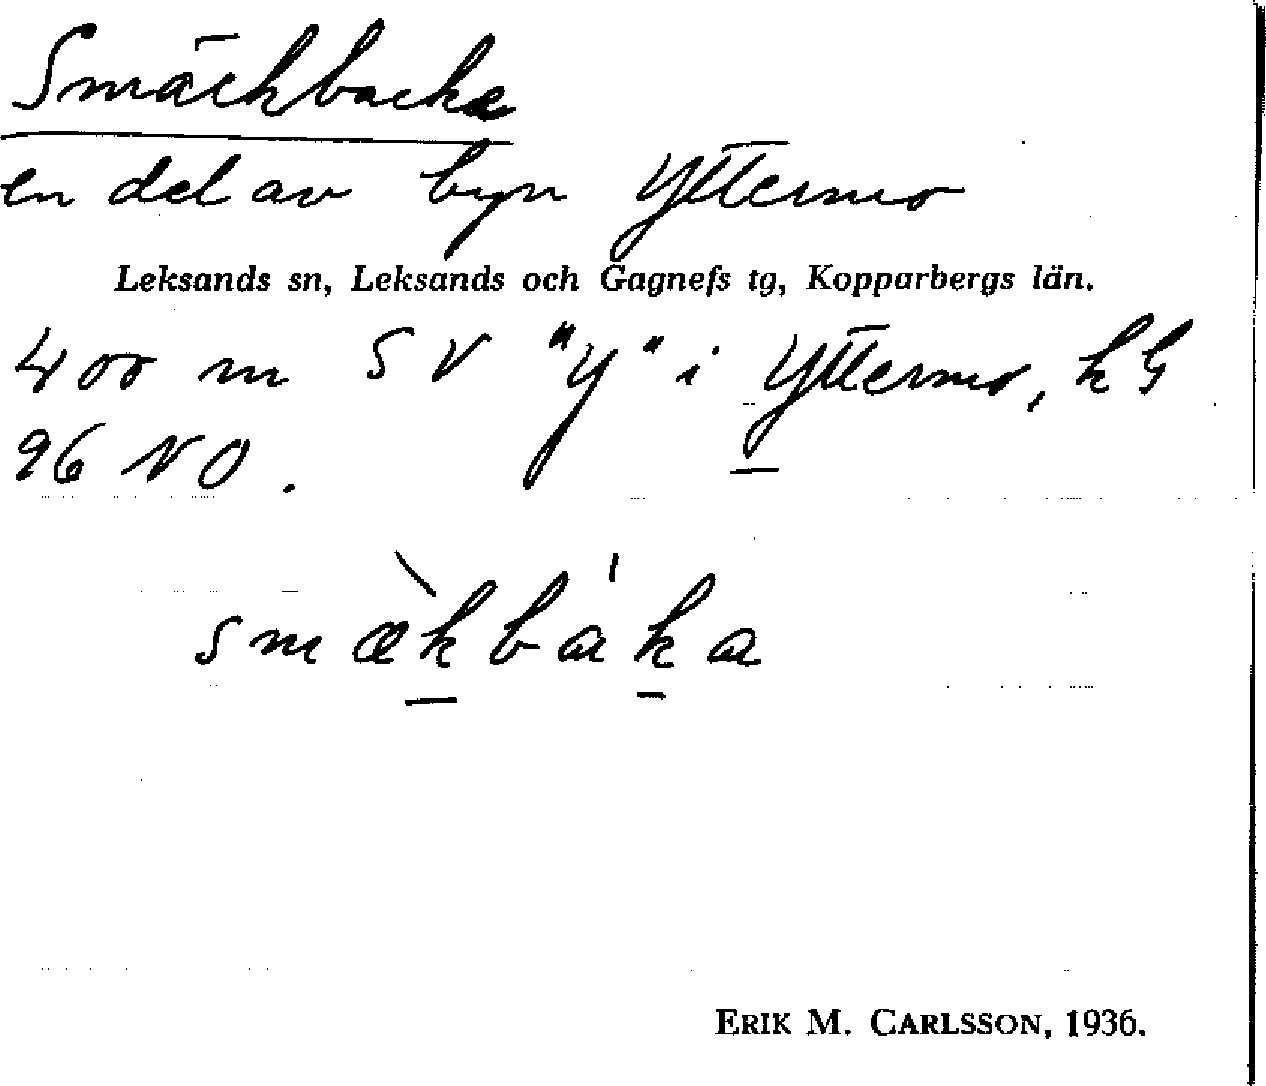 Smäckbacka
en del av byn Yttermo
Leksands sn, Leksands och Gagnefs tg, Kopparbergs län.
400 m SV "Y" i Yttermo, k G
96 NO.
smæ̀kbáka
ERIK M. CARLSSON, 1936.